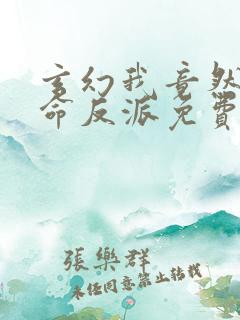 玄幻我竟然
命反派免費
張樂群
未经同意禁止转载